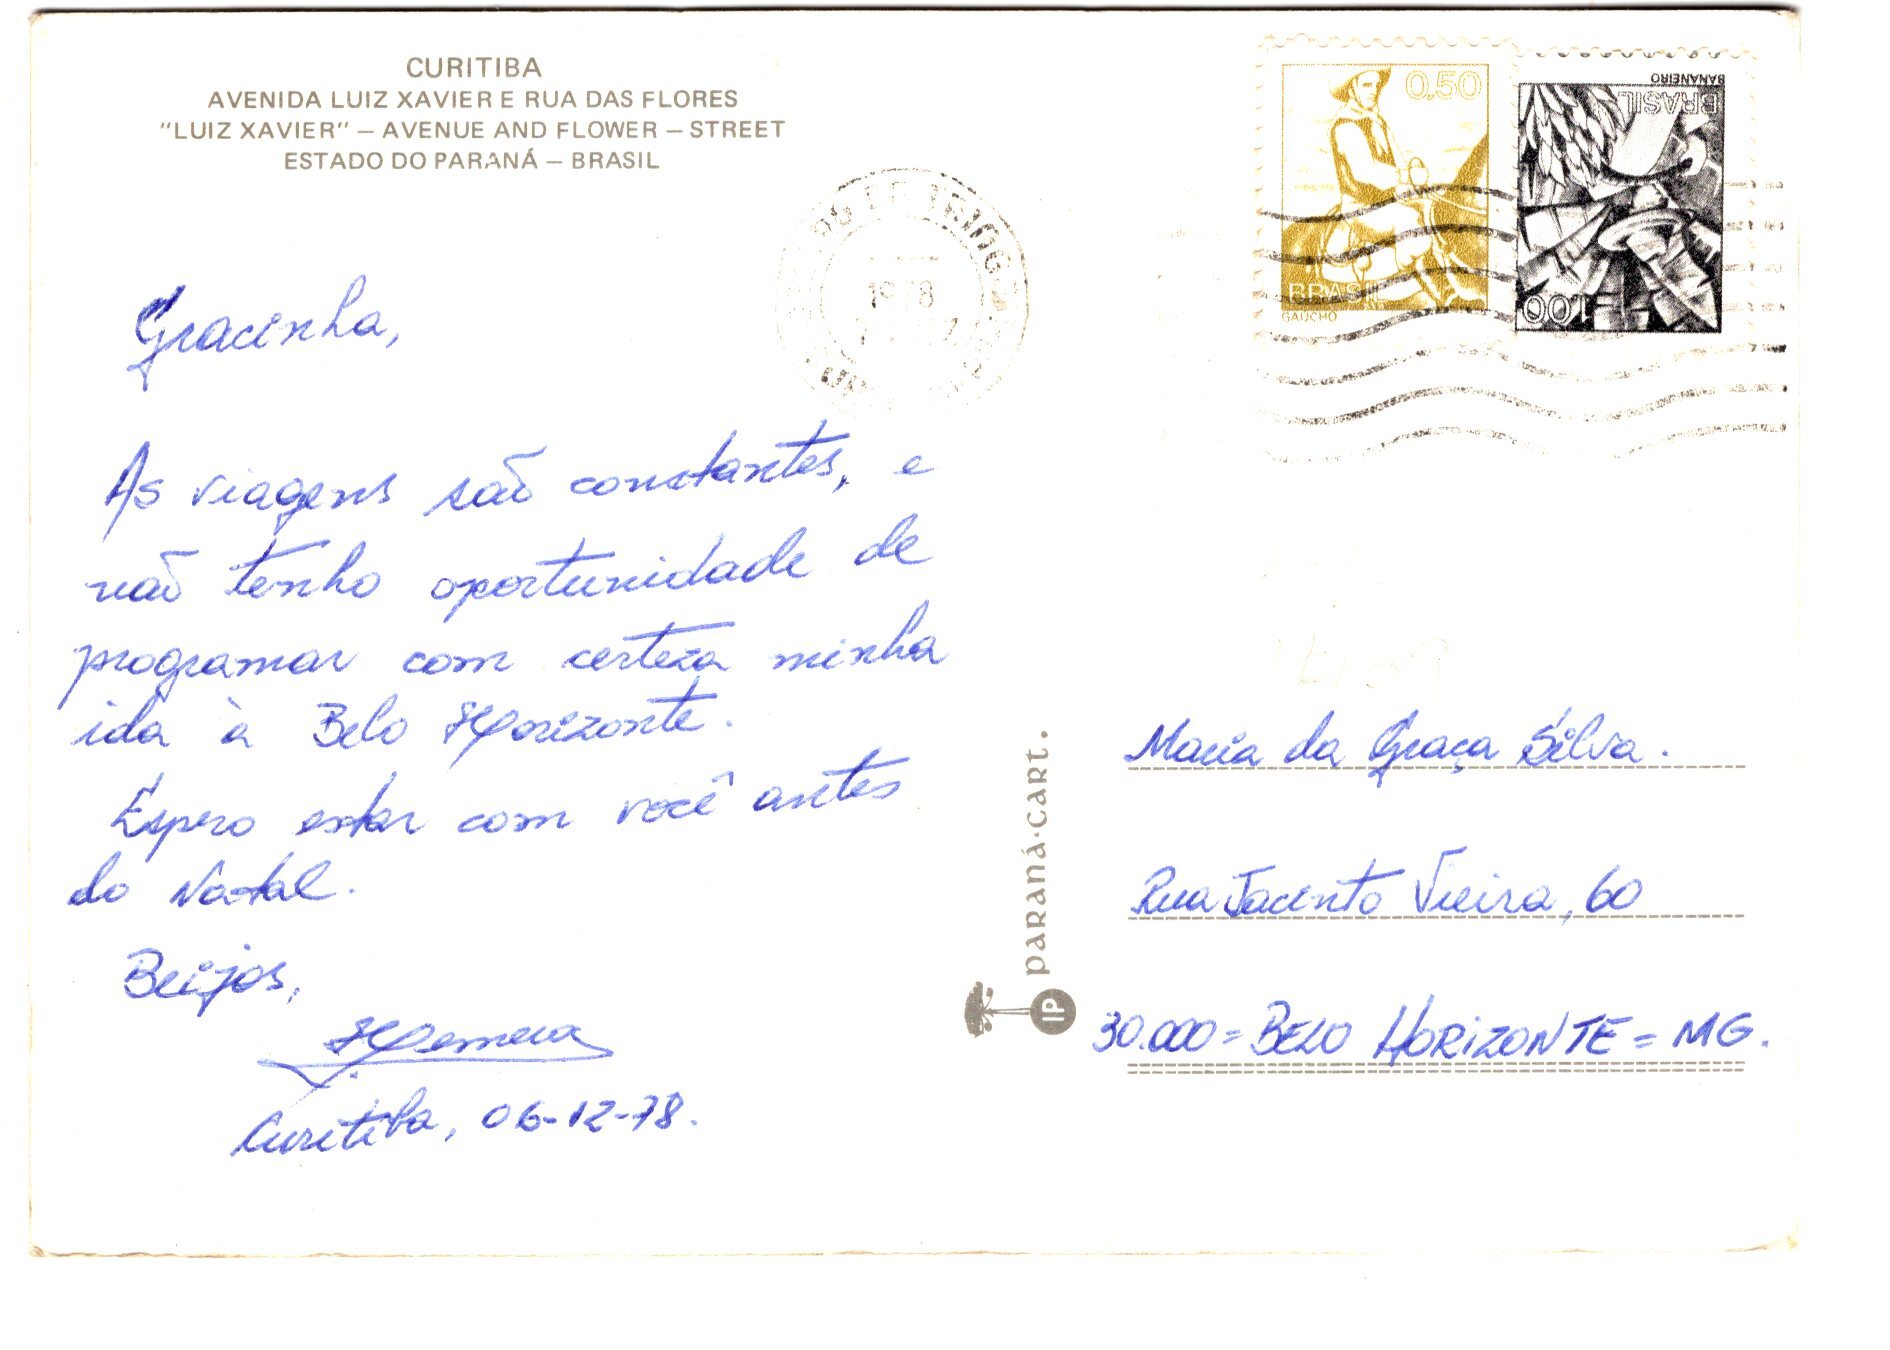 CURITIBA
AVENIDA LUIZ XAVIER E RUA DAS FLORES
"LUIZ XAVIER" – AVENUE AND FLOWER – STREET
ESTADO DO PARANÁ – BRASIL
0,50
BRASIL
GAUCHO
BANANEIRO
BRASIL
1,00
1978
Gracinha,
As viagens são constantes, e
não tenho oportunidade de
programar com certeza minha
ida à Belo Horizonte.
Espero estar com você antes
do Natal.
Beijos,
Curitiba, 06-12-78.
paraná-cart.
IP
Maria da Graça Silva.
Rua Jacinto Vieira, 60
30.000 = BELO HORIZONTE = MG.